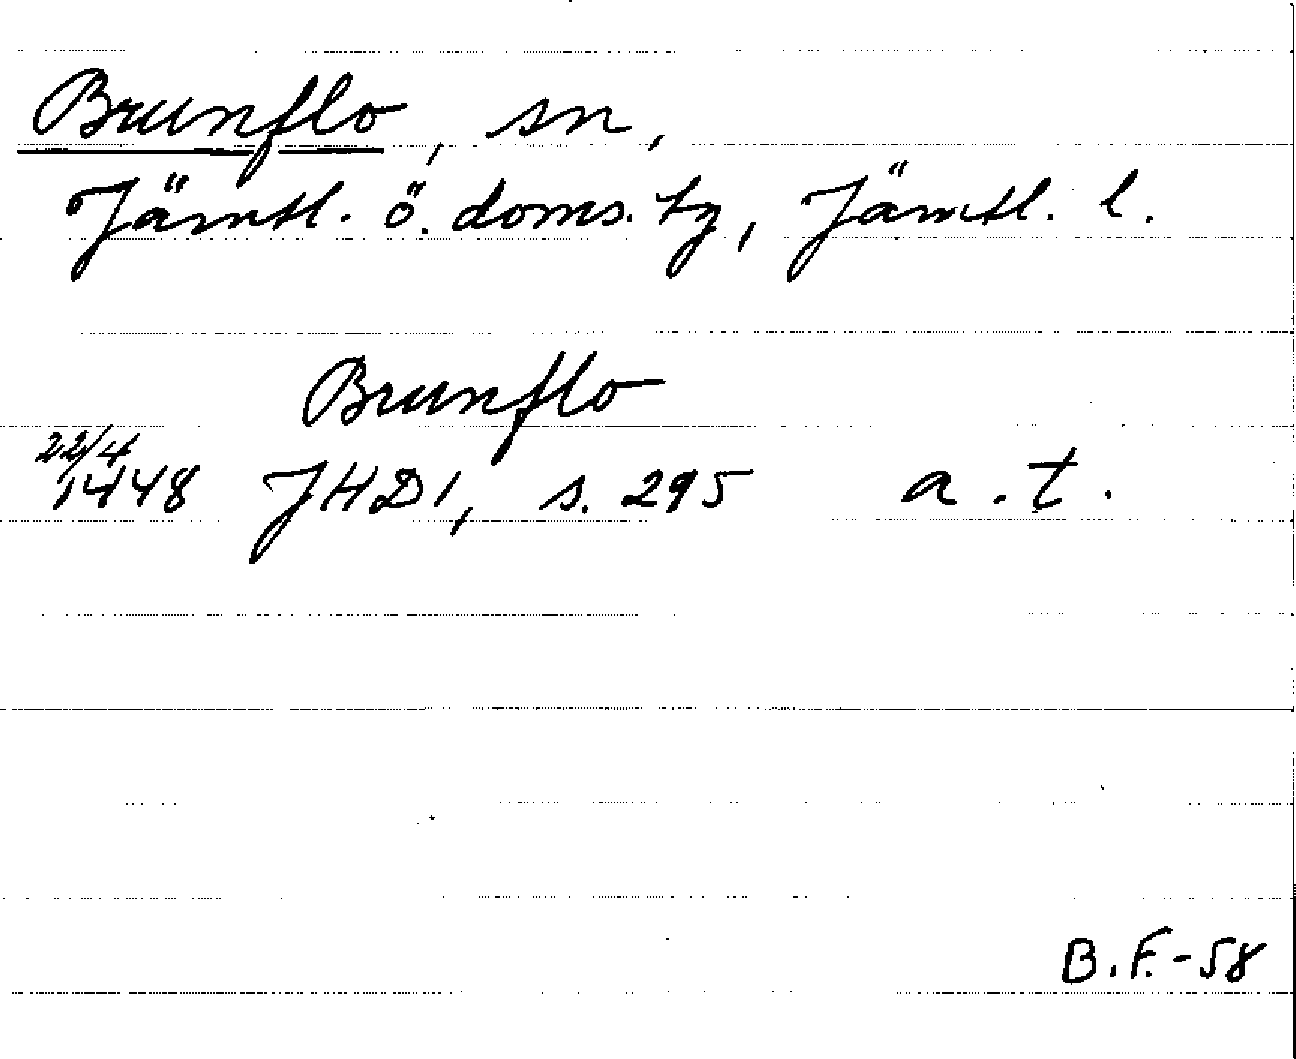 Brunflo, sn,
Jämtl. ö. doms. tg, Jämtl. l.
Brunflo
22/4
1448 JHD1, s. 295 a.t.
B.F.-58